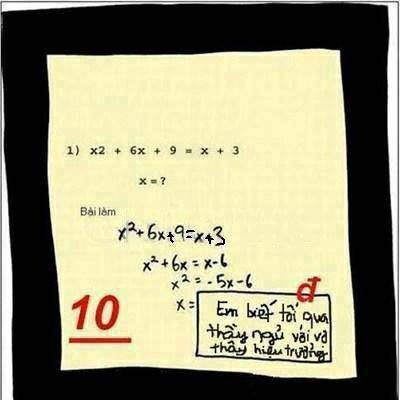 1) x2 + 6x + 9 = x + 3
x = ?
Bài làm
x²+6x+9=x+3
x²+6x = x-6
x² = -5x-6
x =
10 đ
Em biết tối qua
thầy ngủ với vợ
thầy hiệu trưởng